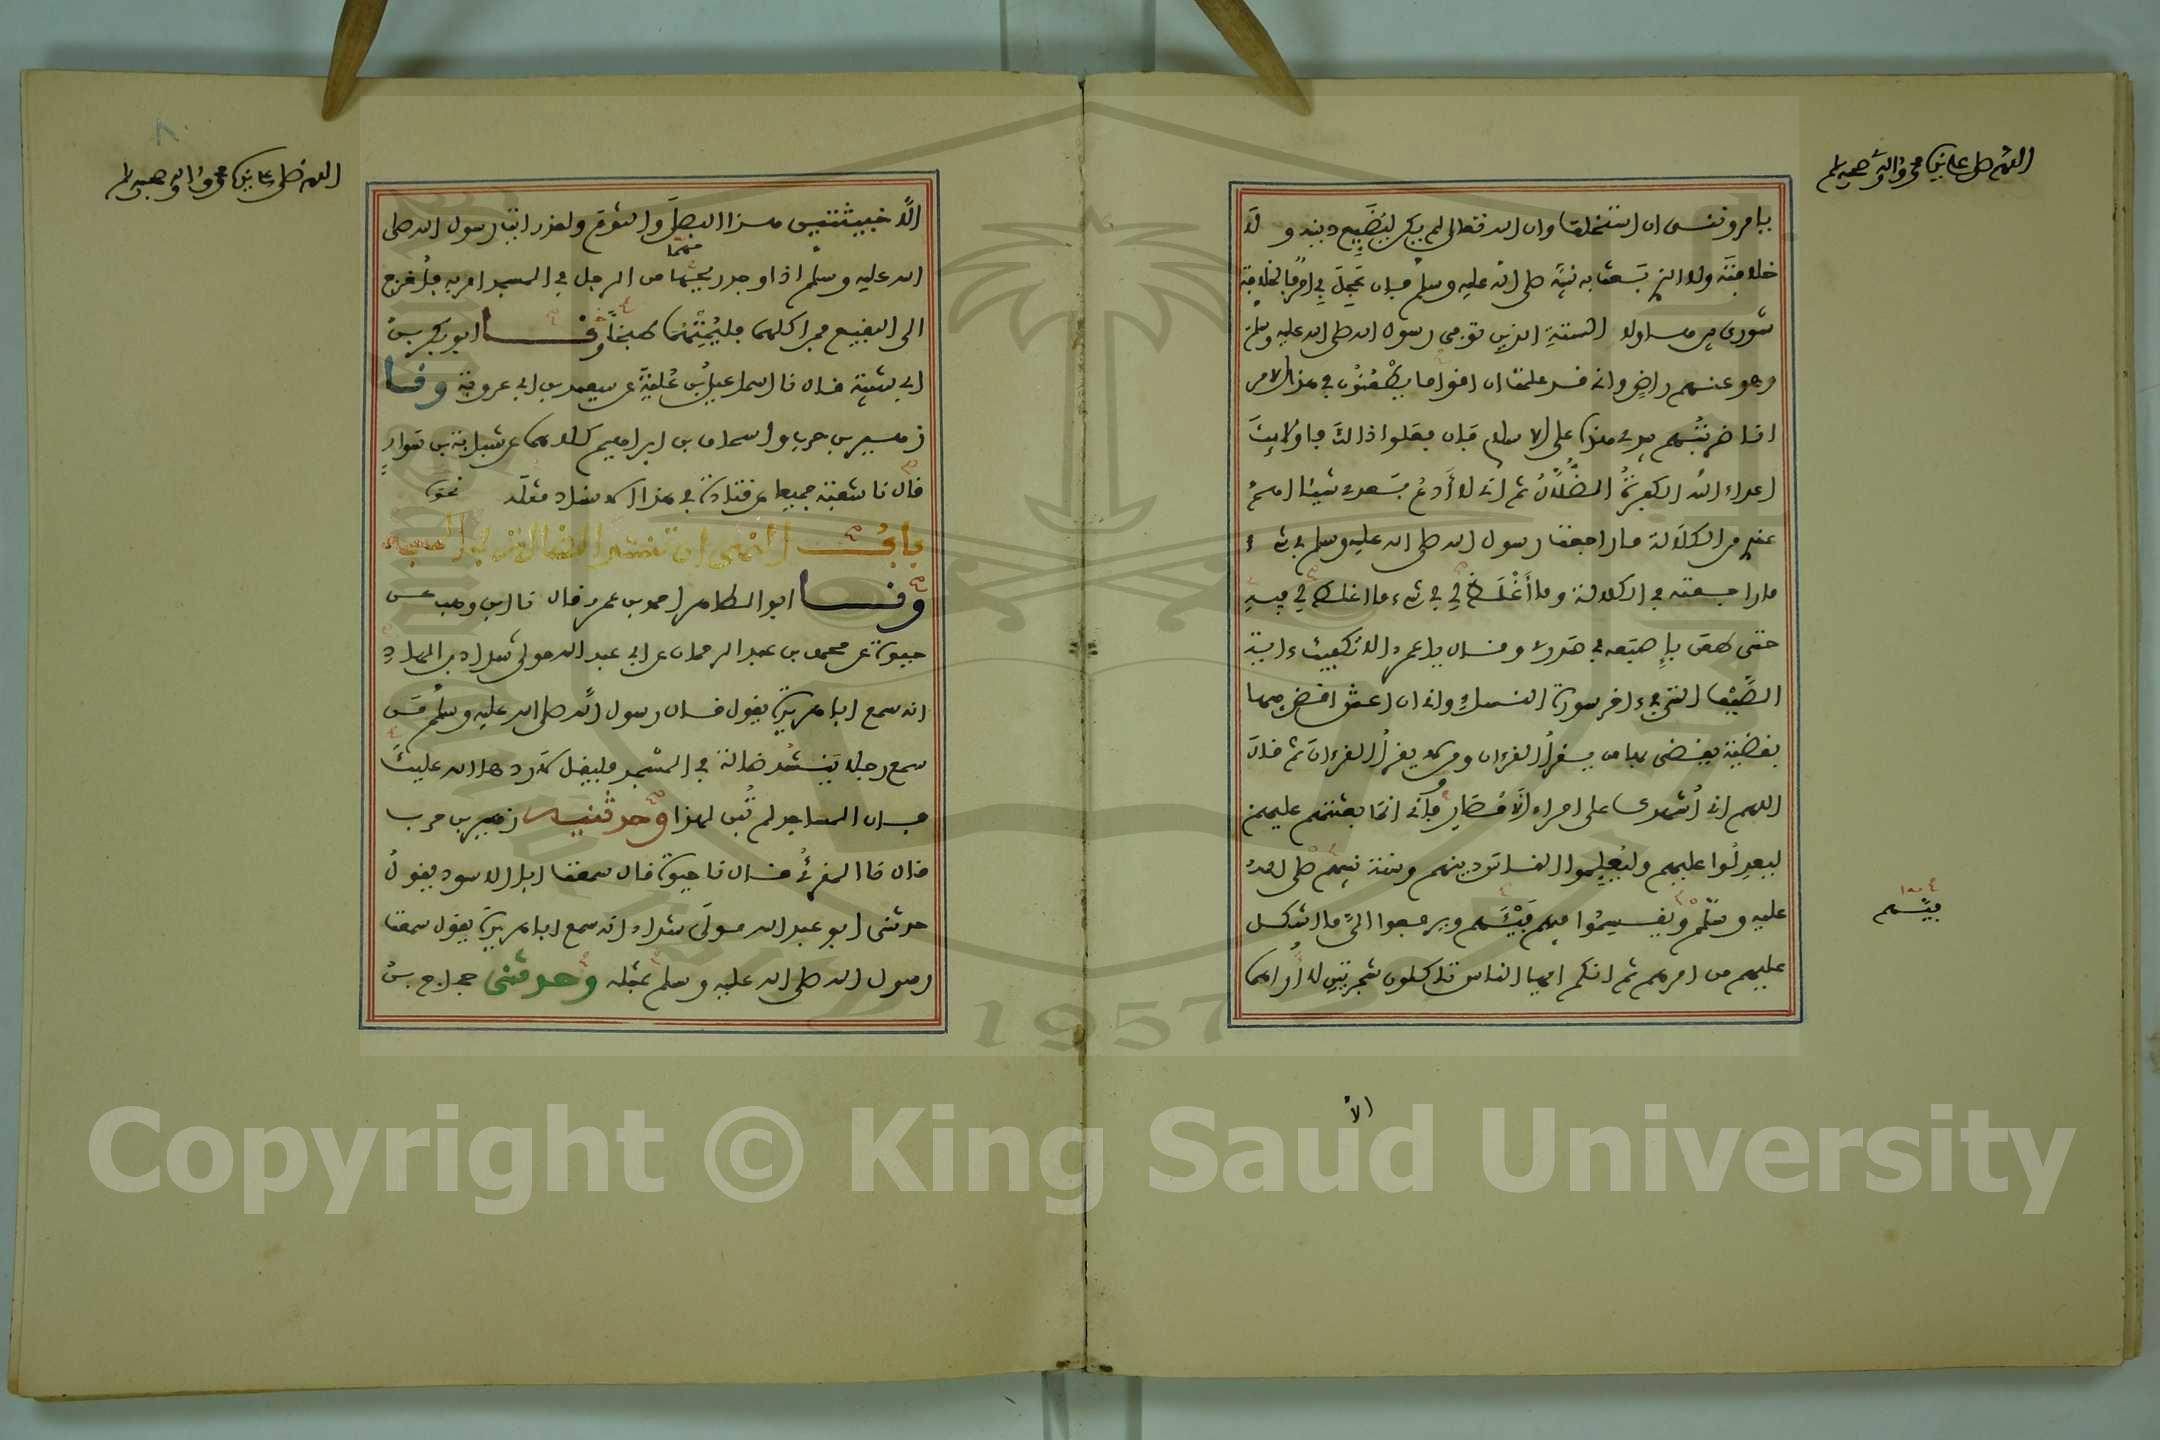 اللهم صل على نبينا محمد وءاله وصحبه وسلم
يامرونني ان استخلف وان الله تعالى لم يكن ليضيع دينه ولا
خلافته ولا الذي بعث به نبيه صلى الله عليه وسلم فإن عجل بي امر فالخلافة
شورى بين هـاولاء الستة الذين توفي رسول الله صلى الله عليه وسلم
وهو عنهم راض واني قد علمت ان اقواما يطعنون في هذا الامر
انا ضربتهم بيدي هذه على الاسلام فإن فعلوا ذالك فاولائك
اعداء الله الكفرة الضلال ثم اني لا أدع بعدي شيئا اهم
عندي من الكلالة ما راجعت رسول الله صلى الله عليه وسلم في شيء
ما راجعته في الكلالة وما أغلظ لي في شيء ما اغلظ لي فيه
حتى طعن بإصبعه في صدري وقال يا عمر الا تكفيك ءاية
الصيف التي في ءاخر سورة النساء واني ان اعش اقض فيها
بقضية يقضي بها من يقرأ القرءان ومن لا يقرأ القرءان ثم قال
اللهم اني أشهدك على امراء الأمصار فإني انما بعثتهم عليهم
ليعدلوا عليهم وليعلموا الناس دينهم وسنة نبيهم صلى الله
عليه وسلم ويقسموا فيهم فيئهم ويرفعوا الي ما اشكل
عليهم من امرهم ثم انكم ايها الناس تاكلون شجرتين لا أراهما
فيئهم
الا
اللهم صل على نبينا محمد وءاله وصحبه وسلم
إلا خبيثتين هذا البصل والثوم ولقد رايت رسول الله صلى
الله عليه وسلم اذا وجد ريحهما من الرجل في المسجد امر به فأخرج
الى البقيع فمن اكلهما فليمتهما طبخا ونـا ابو بكر بن
ابي شيبة قال نا اسماعيل بن علية عن سعيد بن ابي عروبة ونا
زهير بن حرب واسحاق بن ابراهيم كلاهما عن شبابة بن سوار
قال نا شعبة جميعا عن قتادة في هذا الاسناد مثله نحو
باب النهي ان تنشد الضالة في المسجد
ونـا ابو الطاهر احمد بن عمرو قال نا ابن وهب عن
حيوة عن محمد بن عبد الرحمان عن ابي عبد الله مولى شداد بن الهاد
انه سمع ابا هريرة يقول قال رسول الله صلى الله عليه وسلم من
سمع رجلا ينشد ضالة في المسجد فليقل لا ردها الله عليك
فإن المساجد لم تبن لهذا وحدثنيه زهير بن حرب
قال نا المقرئ قال نا حيوة قال سمعت ابا الاسود يقول
حدثني ابو عبد الله مولى شداد انه سمع ابا هريرة يقول سمعت
رسول الله صلى الله عليه وسلم بمثله وحدثني حجاج بن
Copyright © King Saud University
1957